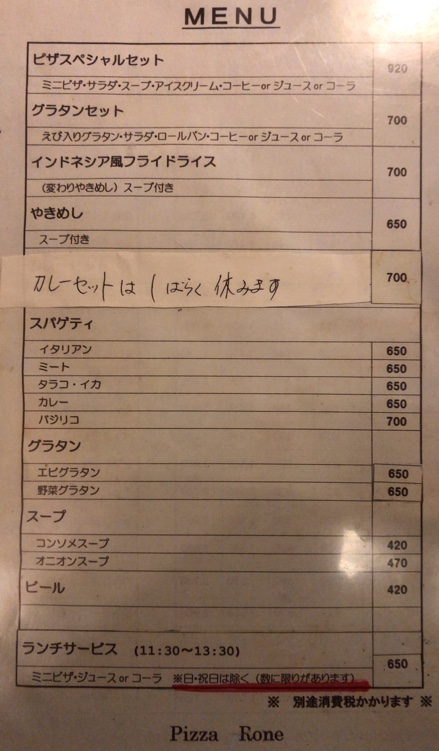 MENU
ピザスペシャルセット 920
ミニピザ・サラダ・スープ・アイスクリーム・コーヒーor ジュース or コーラ
グラタンセット 700
えび入りグラタン・サラダ・ロールパン・コーヒーor ジュース or コーラ
インドネシア風フライドライス 700
(変わりやきめし) スープ付き
やきめし 650
スープ付き
カレーセットは しばらく 休みます 700
スパゲティ
イタリアン 650
ミート 650
タラコ・イカ 650
カレー 650
バジリコ 700
グラタン
エビグラタン 650
野菜グラタン 650
スープ
コンソメスープ 420
オニオンスープ 470
ビール 420
ランチサービス (11:30~13:30) 650
ミニピザ・ジュース or コーラ ※日・祝日は除く (数に限りがあります)
※ 別途消費税かかります ※
Pizza Rone